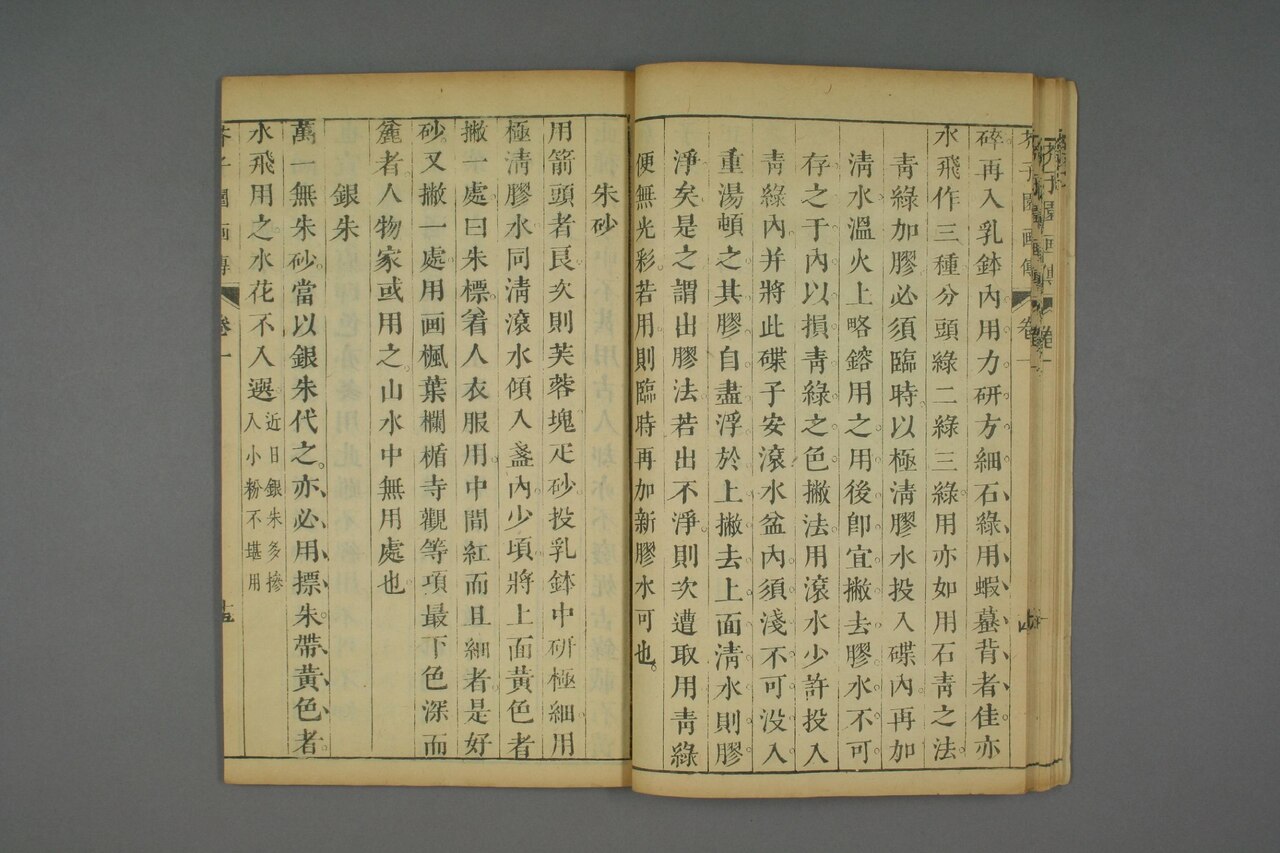 芥子園画傳 卷一
碎再入乳鉢內用力研方細石綠用蝦蟇背者佳亦
水飛作三種分頭綠二綠三綠用亦如用石靑之法
靑綠加膠必須臨時以極淸膠水投入碟內再加
淸水溫火上略鎔用之用後卽宜撇去膠水不可
存之于內以損靑綠之色撇法用滾水少許投入
靑綠內并將此碟子安滾水盆內須淺不可没入
重湯頓之其膠自盡浮於上撇去上面淸水則膠
淨矣是之謂出膠法若出不淨則次遭取用靑綠
便無光彩若用則臨時再加新膠水可也
朱砂
用箭頭者良次則芙蓉塊疋砂投乳鉢中研極細用
極淸膠水同淸滾水傾入盞內少頃將上面黃色者
撇一處曰朱標着人衣服用中間紅而且細者是好
砂又撇一處用画楓葉欄楯寺觀等項最下色深而
麄者人物家或用之山水中無用處也
銀朱
萬一無朱砂當以銀朱代之亦必用摽朱帶黃色者
水飛用之水花不入選近日銀朱多摻
入小粉不堪用
芥子園画傳 卷一